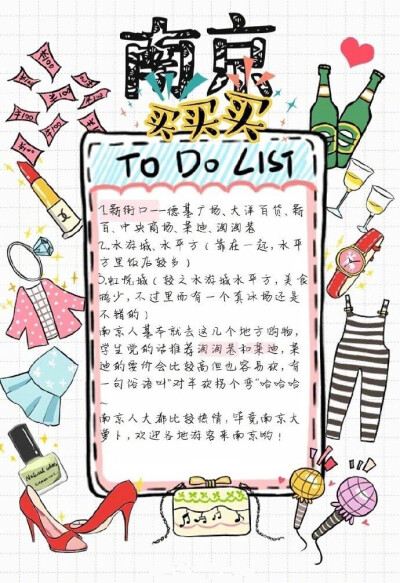 南京
买买买
TO DO LIST
1.新街口——德基广场、大洋百货、新
百、中央商场、莱迪、淘淘巷
2.水游城、水平方(靠在一起,水平
方里饭店较多)
3.虹悦城(较之水游城水平方,美食
略少,不过里面有一个真冰场还是
不错的)
南京人基本就去这几个地方购物,
学生党的话推荐淘淘巷和莱迪,莱
迪的要价会比较高但也容易砍,有
一句俗语叫“对半砍拐个弯”哈哈哈
~
南京人大都比较热情,毕竟南京大
萝卜,欢迎各地游客来南京哟!